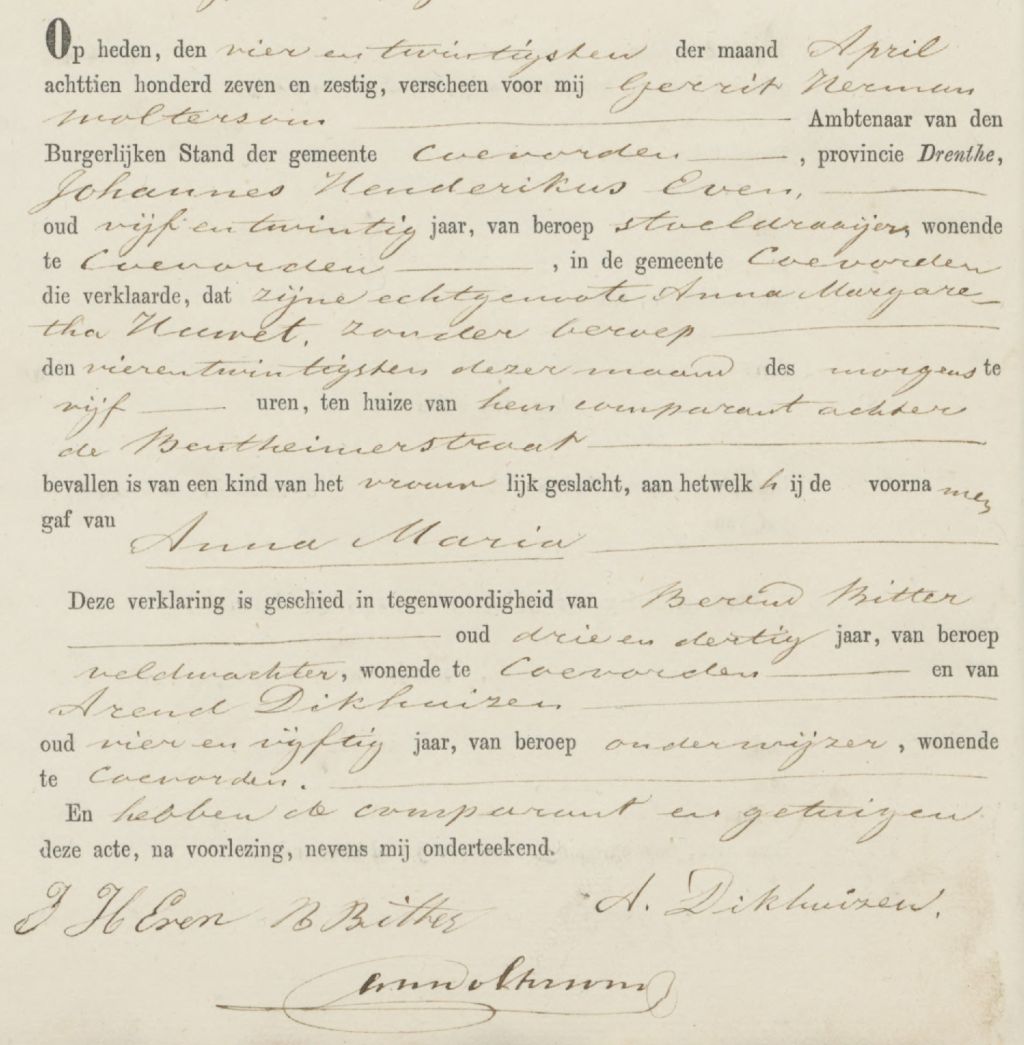 Op heden, den vier en twintigsten der maand April
achttien honderd zeven en zestig, verscheen voor mij Gerrit Herman
Woltersom Ambtenaar van den
Burgerlijken Stand der gemeente Coevorden, provincie Drenthe,
Johannes Henderikus Even,
oud vijf en twintig jaar, van beroep stoeldraaijer, wonende
te Coevorden, in de gemeente Coevorden
die verklaarde, dat zijne echtgenoote Anna Margare-
tha Huwet, zonder beroep
den vierentwintigsten dezer maand des morgens te
vijf uren, ten huize van hem comparant achter
de Bentheimerstraat
bevallen is van een kind van het vrouwlijk geslacht, aan hetwelk hij de voornamen
gaf van Anna Maria
Deze verklaring is geschied in tegenwoordigheid van Berend Bitter
oud drie en dertig jaar, van beroep
veldwachter, wonende te Coevorden en van
Arend Dikhuizen
oud vier en vijftig jaar, van beroep onderwijzer, wonende
te Coevorden.
En hebben de comparant en getuigen
deze acte, na voorlezing, nevens mij onderteekend.
J H Even B Bitter A. Dikhuizen.